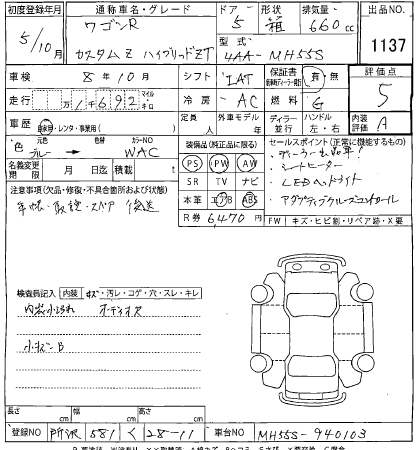 初度登録年月 通称車名・グレード ドア 形状 排気量 出品NO.
5/10月 ワゴンR 5 箱 660cc 1137
カスタムZ ハイブリッドZT 型式 4AA-MH55S
車検 8年10月 シフト IAT 保証書 有・無 評価点
走行 万 1千692 マイル キロ 冷房 AC 燃料 G 5
車歴 自家用・レンタ・事業用( ) 定員 人 外車モデル 年 ディーラー 並行 ハンドル 左・右 内装評価 A
色 元色 ブルー → 色替 カラーNO WAC
装備品(純正品に限る)
セールスポイント(正常に機能するもの)
名義変更期限 月 日迄 積載 t
PS PW AW
ディーラー出品車!
シートヒーター
SR TV ナビ
LEDヘッドライト
注意事項(欠品・修復・不具合箇所および状態)
本革 エアB ABS
アダプティブクルーズコントロール
手帳・取説・スペア 後送
R券 6,470円
FW キズ・ヒビ割・リペア跡・X要
検査員記入 内装 キズ・汚レ・コゲ・穴・スレ・キレ
内装小汚れ オーディオス
小キズB
長さ cm 幅 cm 高さ cm
登録NO 所沢 581 く 28-11 車台NO MH55S-940103